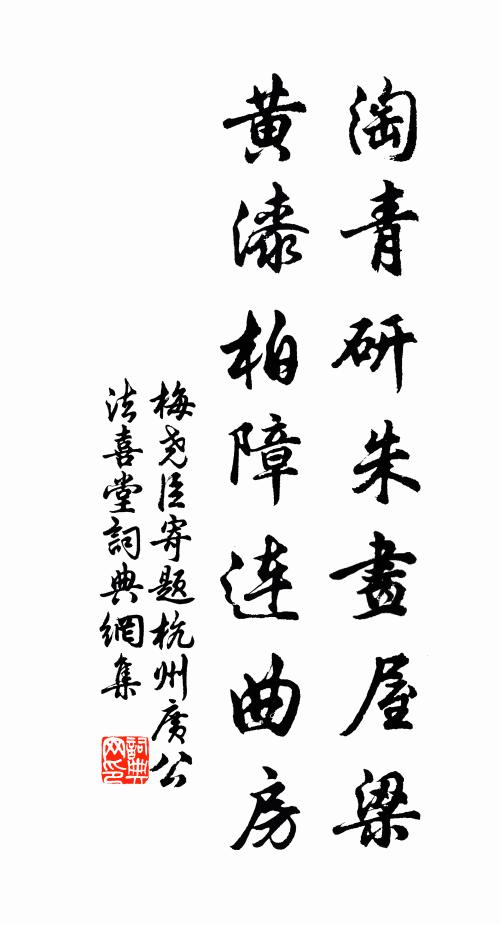 淘青研朱畫屋梁
黃漆柏障連曲房
梅尧臣寄題杭州廣公
法喜堂詞典網集
詞典網印